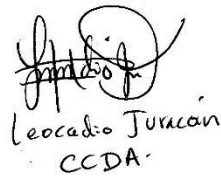 Leocadio Juracán
CCDA.